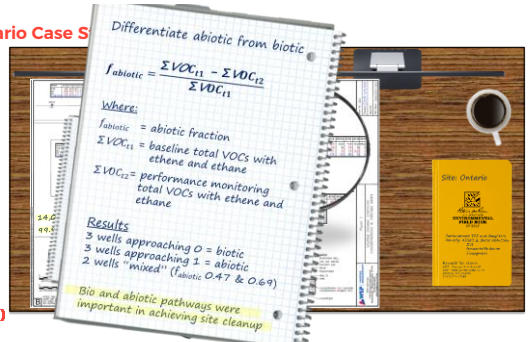 ario Case S
Differentiate abiotic from biotic
f_abiotic = (ΣVOC_t1 − ΣVOC_t2) / ΣVOC_t1
Where:
f_abiotic = abiotic fraction
ΣVOC_t1 = baseline total VOCs with
ethene and ethane
ΣVOC_t2 = performance monitoring
total VOCs with ethene and
ethane
Results
3 wells approaching 0 = biotic
3 wells approaching 1 = abiotic
2 wells "mixed" (f_abiotic 0.47 & 0.69)
Bio and abiotic pathways were
important in achieving site cleanup
Site: Ontario
ENVIRONMENTAL
FIELD BOOK